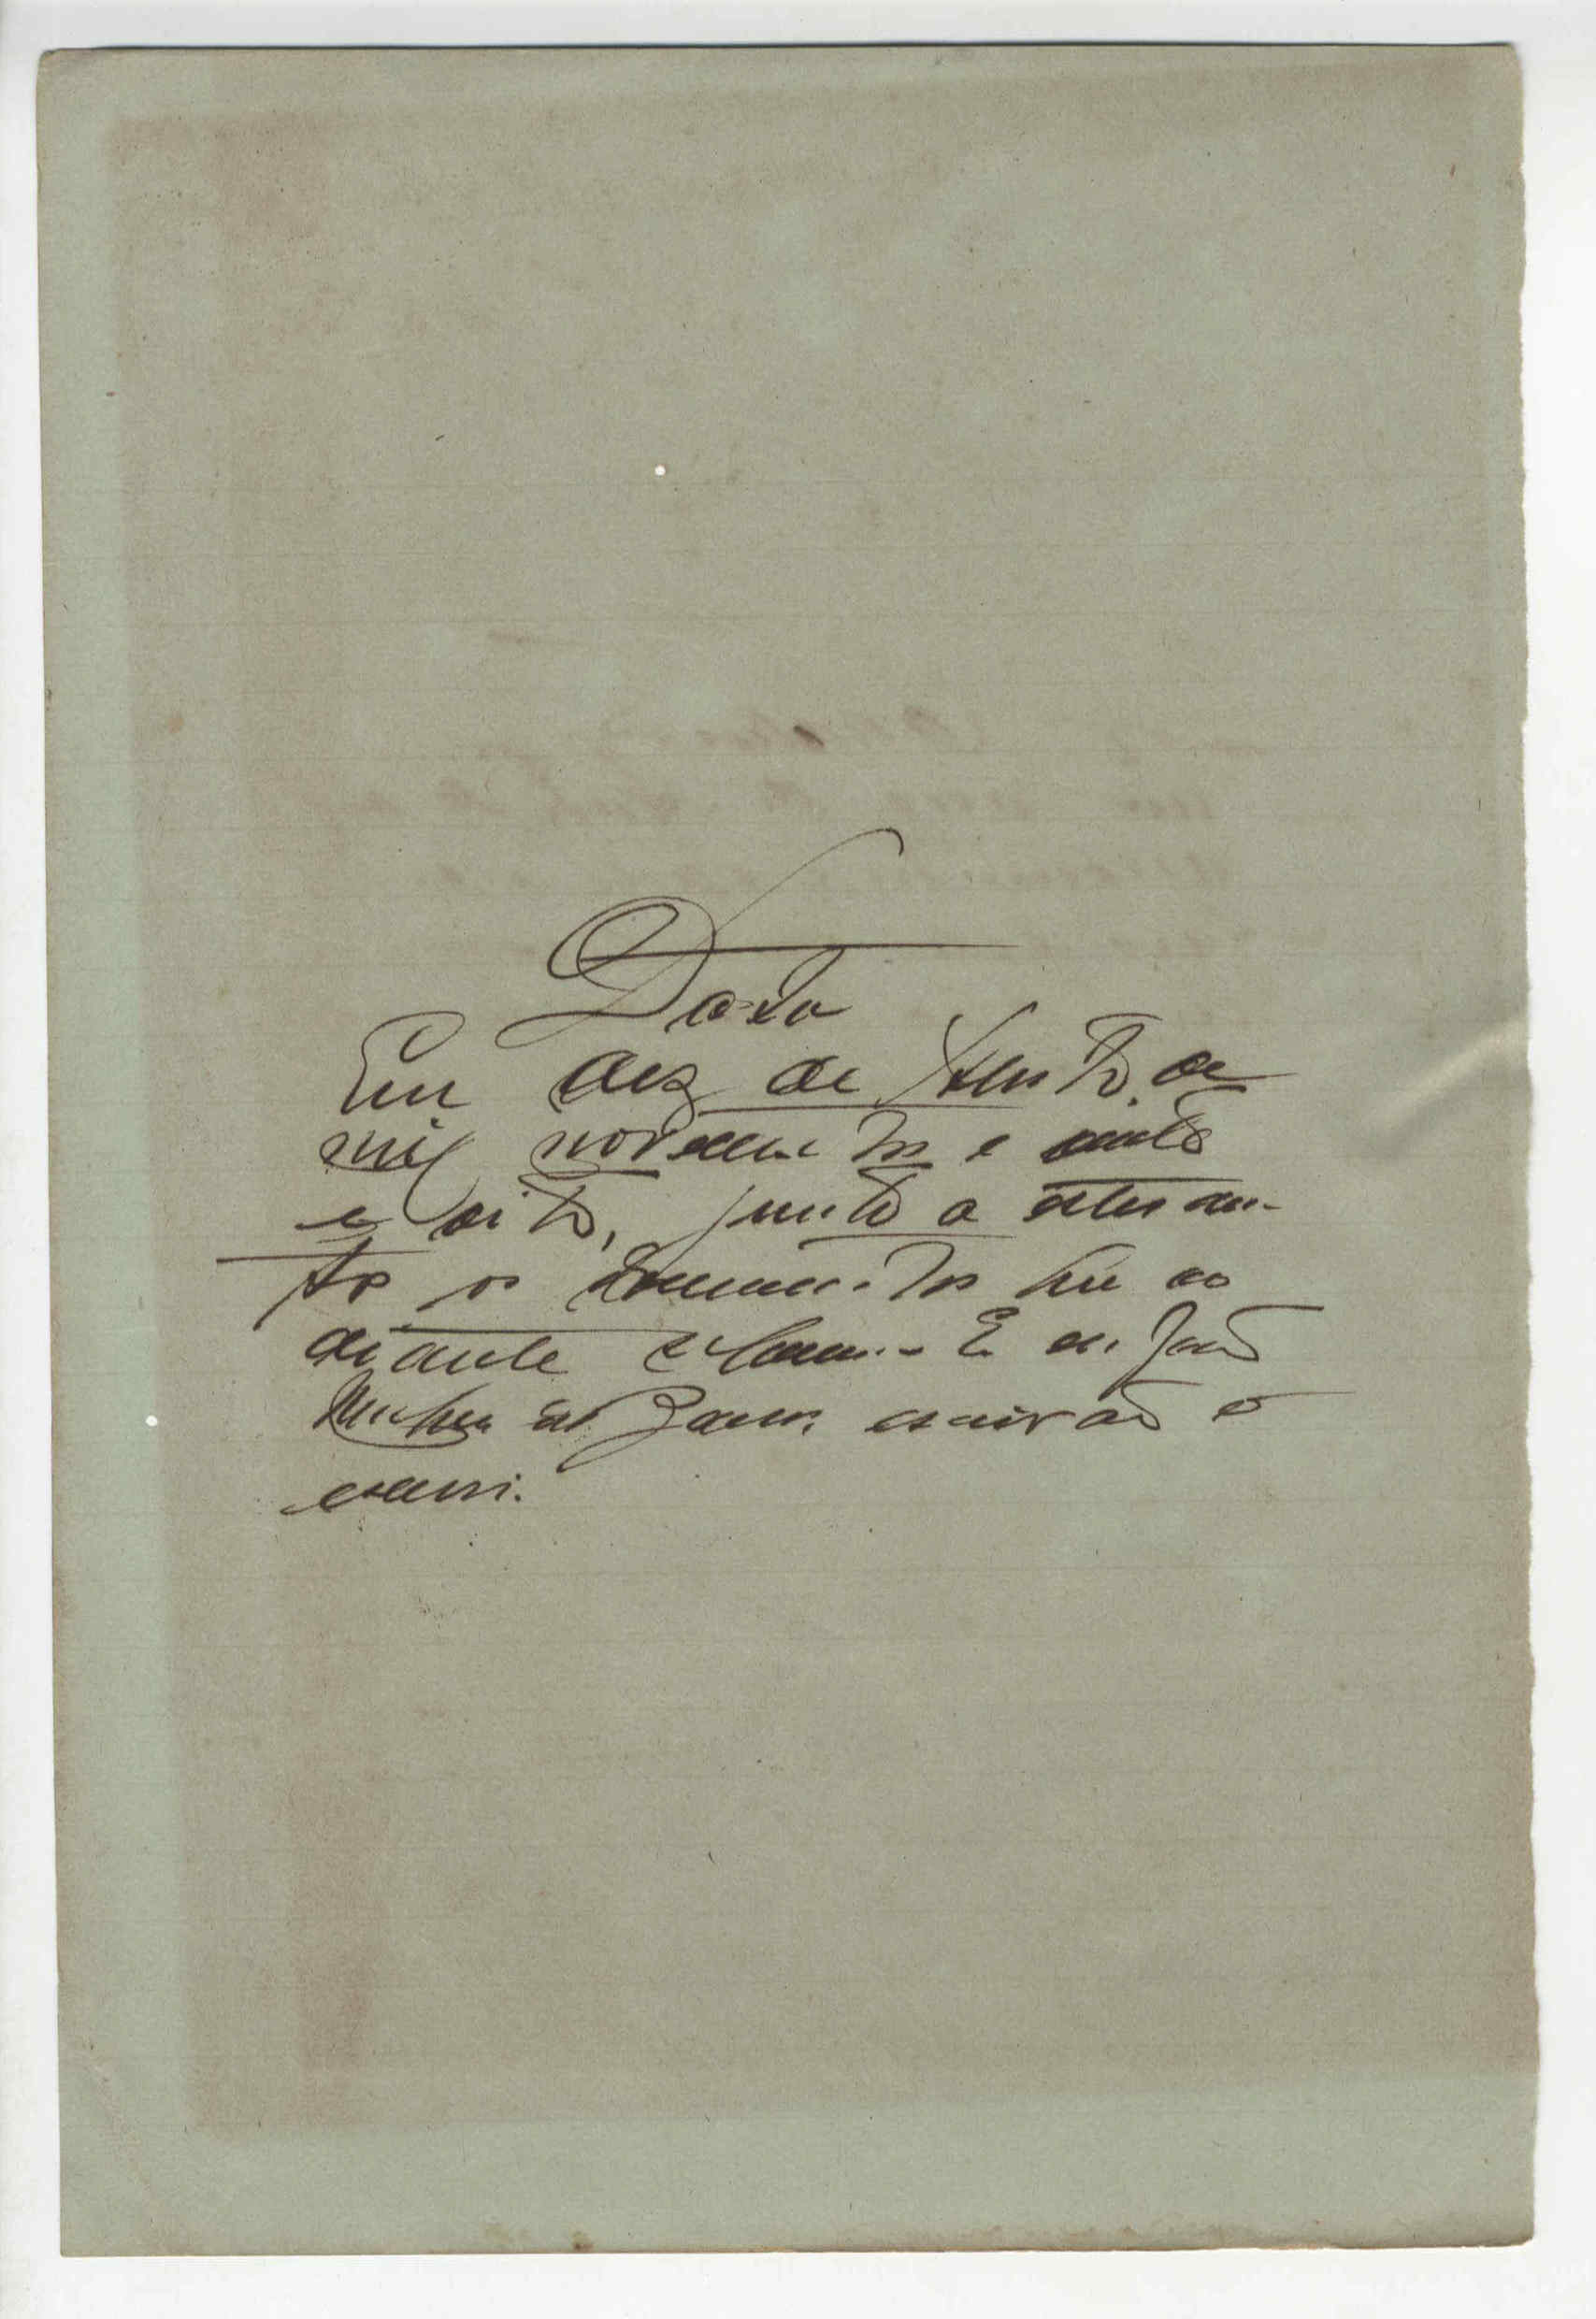 Data
Em dez de de
mil novecentos e vinte
e oito, junto a estes au-
tos os documentos que ao
diante se E eu João
escrivão o
escrevi.